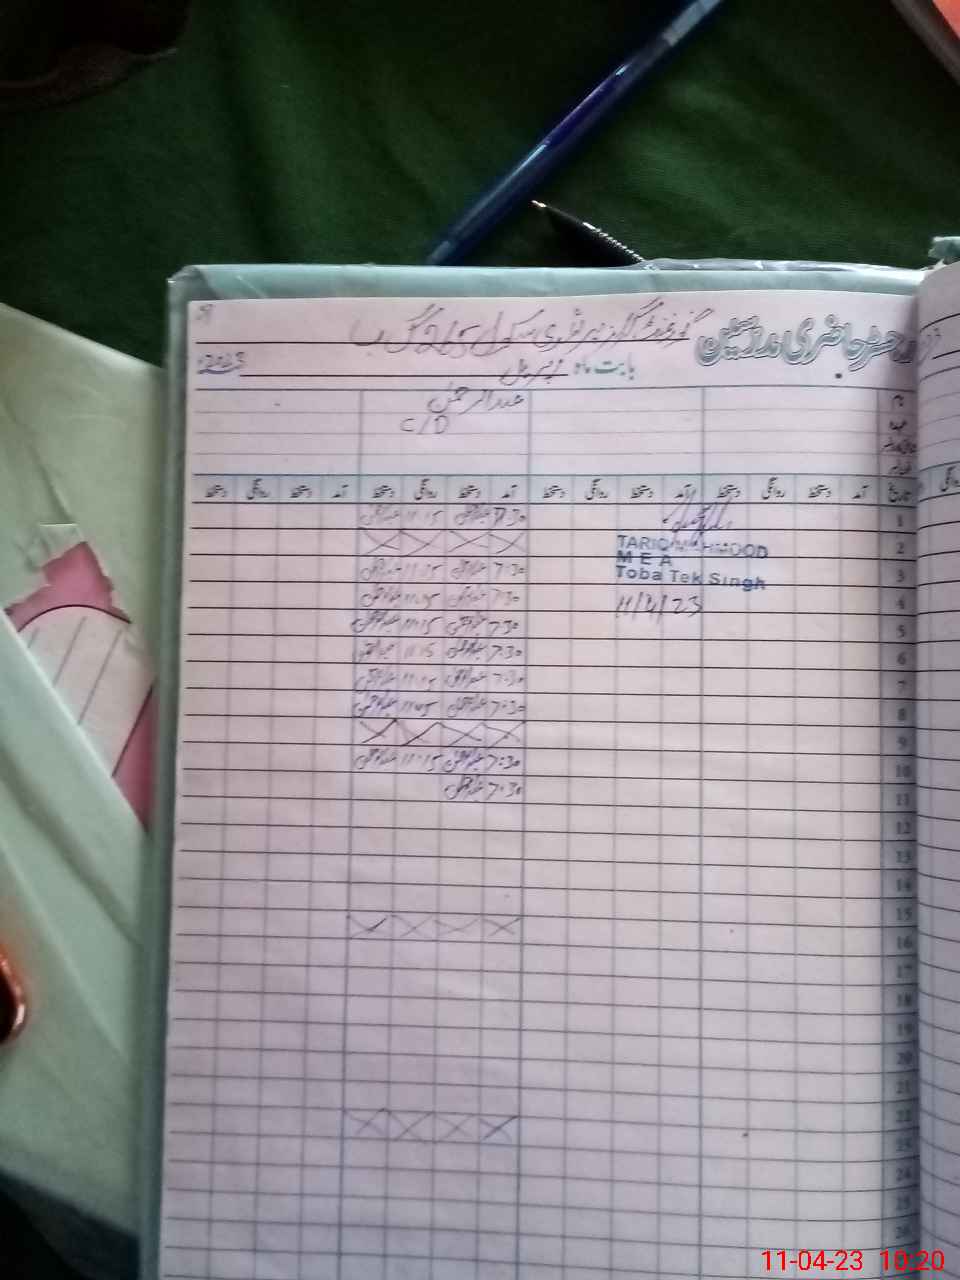 رجسٹر حاضری مدرسین گورنمنٹ گرلز پرائمری سکول 265 گ ب
بابت ماہ اپریل 2023
نام عبدالرحمٰن
عہدہ C/D
تاریخ آمد دستخط روانگی دستخط آمد دستخط روانگی دستخط آمد دستخط روانگی دستخط آمد دستخط روانگی دستخط
1 7:30 عبدالرحمٰن 11:15 عبدالرحمٰن
2
TARIQ MAHMOOD
M E A
3 7:30 عبدالرحمٰن 11:15 عبدالرحمٰن
Toba Tek Singh
4 7:30 عبدالرحمٰن 11:15 عبدالرحمٰن
11/4/23
5 7:30 عبدالرحمٰن 11:15 عبدالرحمٰن
6 7:30 عبدالرحمٰن 11:15 عبدالرحمٰن
7 7:30 عبدالرحمٰن 11:15 عبدالرحمٰن
8 7:30 عبدالرحمٰن 11:45 عبدالرحمٰن
9
10 7:30 عبدالرحمٰن 11:15 عبدالرحمٰن
11 7:30 عبدالرحمٰن
12
13
14
15
16
17
18
19
20
21
22
23
24
25
26
11-04-23 10:20